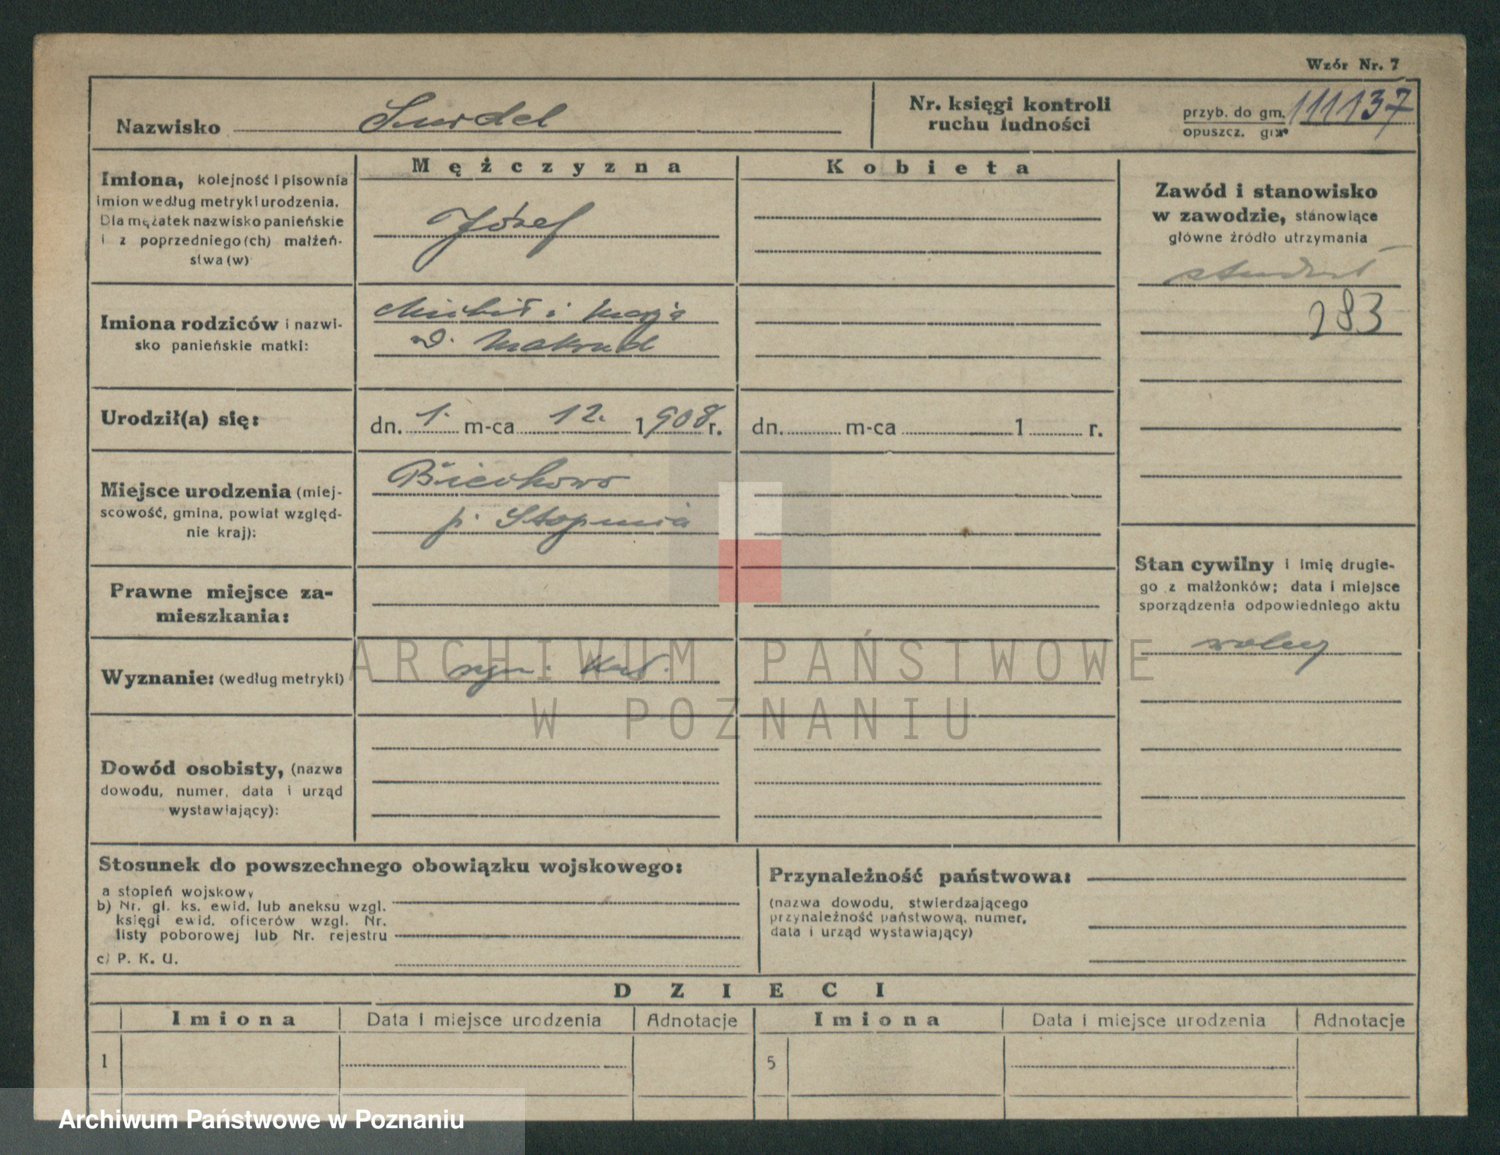 Wzór Nr. 7
Nazwisko Surdel
Nr. księgi kontroli
ruchu ludności
przyb. do gm.
opuszcz. gm.
111137
Mężczyzna
Kobieta
Imiona, kolejność i pisownia
imion według metryki urodzenia.
Dla mężatek nazwisko panieńskie
i z poprzedniego (ch) małżeń-
stwa (w)
Józef
Zawód i stanowisko
w zawodzie, stanowiące
główne źródło utrzymania
student
283
Imiona rodziców i nazwi-
sko panieńskie matki:
i Marja
d.
Urodził(a) się:
dn. 1. m-ca 12. 1908 r.
dn. m-ca 1 r.
Miejsce urodzenia (miej-
scowość, gmina, powiat względ-
nie kraj):
p. Stopnica
Prawne miejsce za-
mieszkania:
Stan cywilny i imię drugie-
go z małżonków; data i miejsce
sporządzenia odpowiedniego aktu
wolny
Wyznanie: (według metryki)
rzym. kat.
Dowód osobisty, (nazwa
dowodu, numer, data i urząd
wystawiający):
Stosunek do powszechnego obowiązku wojskowego:
a stopień wojskowy
b) Nr. gl. ks. ewid. lub aneksu wzgl.
księgi ewid. oficerów wzgl. Nr.
listy poborowej lub Nr. rejestru
c) P. K. U.
Przynależność państwowa:
(nazwa dowodu, stwierdzającego
przynależność państwową, numer,
data i urząd wystawiający)
DZIECI
Imiona Data i miejsce urodzenia Adnotacje Imiona Data i miejsce urodzenia Adnotacje
1 5
ARCHIWUM PAŃSTWOWE
W POZNANIU
Archiwum Państwowe w Poznaniu